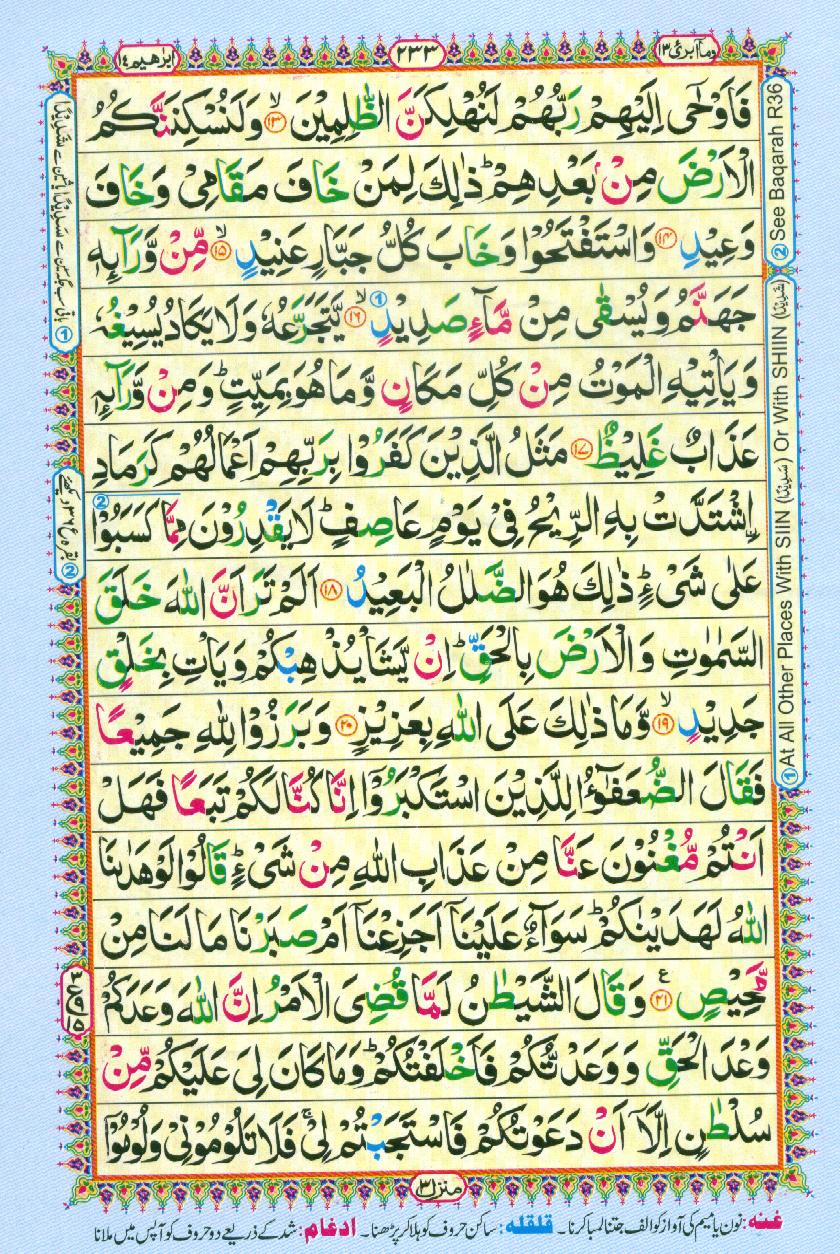 وما ابرئ ١٣
٢٣٣
ابرهيم ١٤
فَاَوْحٰٓى اِلَيْهِمْ رَبُّهُمْ لَنُهْلِكَنَّ الظّٰلِمِيْنَ ۙ‏﴿۱۳﴾‏ وَلَنُسْكِنَنَّكُمُ
الْاَرْضَ مِنْۢ بَعْدِهِمْ ؕ ذٰلِكَ لِمَنْ خَافَ مَقَامِىْ وَخَافَ
وَعِيْدِ ‏﴿۱۴﴾‏ وَاسْتَفْتَحُوْا وَخَابَ كُلُّ جَبَّارٍ عَنِيْدٍۙ‏ ﴿۱۵﴾‏ مِّنْ وَّرَآٮِٕهٖ
جَهَنَّمُ وَيُسْقٰى مِنْ مَّآءٍ صَدِيْدٍۙ‏ ① ﴿۱۶﴾‏ يَّتَجَرَّعُهٗ وَلَا يَكَادُ يُسِيْغُهٗ
وَيَاْتِيْهِ الْمَوْتُ مِنْ كُلِّ مَكَانٍ وَّمَا هُوَ بِمَيِّتٍؕ وَمِنْ وَّرَآٮِٕهٖ
عَذَابٌ غَلِيْظٌ‏ ﴿۱۷﴾‏ مَثَلُ الَّذِيْنَ كَفَرُوْا بِرَبِّهِمْ اَعْمَالُهُمْ كَرَمَادِ
اۨشْتَدَّتْ بِهِ الرِّيْحُ فِىْ يَوْمٍ عَاصِفٍؕ لَا يَقْدِرُوْنَ مِمَّا كَسَبُوْا ②
عَلٰى شَىْءٍؕ ذٰلِكَ هُوَ الضَّلٰلُ الْبَعِيْدُ‏ ﴿۱۸﴾‏ اَلَمْ تَرَ اَنَّ اللّٰهَ خَلَقَ
السَّمٰوٰتِ وَالْاَرْضَ بِالْحَقِّؕ اِنْ يَّشَاْ يُذْهِبْكُمْ وَيَاْتِ بِخَلْقٍ
جَدِيْدٍۙ‏ ﴿۱۹﴾‏ وَّمَا ذٰلِكَ عَلَى اللّٰهِ بِعَزِيْزٍ‏ ﴿۲۰﴾‏ وَبَرَزُوْا لِلّٰهِ جَمِيْعًا
فَقَالَ الضُّعَفٰٓؤُا لِلَّذِيْنَ اسْتَكْبَرُوْۤا اِنَّا كُنَّا لَكُمْ تَبَعًا فَهَلْ
اَنْتُمْ مُّغْنُوْنَ عَنَّا مِنْ عَذَابِ اللّٰهِ مِنْ شَىْءٍؕ قَالُوْا لَوْ هَدٰٮنَا
اللّٰهُ لَهَدَيْنٰكُمْؕ سَوَآءٌ عَلَيْنَاۤ اَجَزِعْنَاۤ اَمْ صَبَرْنَا مَا لَنَا مِنْ
مَّحِيْصٍ ﴿۲۱﴾‏ ع وَقَالَ الشَّيْطٰنُ لَمَّا قُضِىَ الْاَمْرُ اِنَّ اللّٰهَ وَعَدَكُمْ
وَعْدَ الْحَقِّ وَوَعَدْتُّكُمْ فَاَخْلَفْتُكُمْؕ وَمَا كَانَ لِىَ عَلَيْكُمْ مِّنْ
سُلْطٰنٍ اِلَّاۤ اَنْ دَعَوْتُكُمْ فَاسْتَجَبْتُمْ لِىْۚ فَلَا تَلُوْمُوْنِىْ وَلُوْمُوْۤا
② See Baqarah R36
① At All Other Places With SIIN (سَدِيْدًا) Or With SHIIN (شَدِيْدًا)
② بقره ع ٣٦ دیکھئے
منزل ٣
غنه: نون یا میم کی آواز کو الف جتنا لمبا کرنا۔ قلقله: ساکن حروف کو ہلا کر پڑھنا۔ ادغام: شد کے ذریعے دو حروف کو آپس میں ملانا